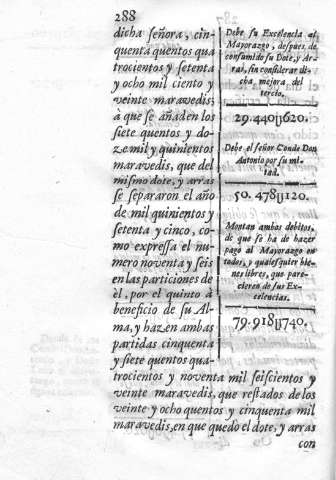 288
dicha señora, cin-
quenta quentos qua
trocientos y setenta
y ocho mil ciento y
veinte maravedis;
à que se añaden los
siete quentos y do-
ze mil y quinientos
maravedis, que del
mismo dote, y arras
se separaron el año
de mil quinientos y
setenta y cinco, co-
mo expressa el nu-
mero noventa y seis
en las particiones de
èl, por el quinto à
beneficio de su Al-
ma, y hazen ambas
partidas cinquenta
y siete quentos qua-
trocientos y noventa mil seiscientos y
veinte maravedis, que restados de los
veinte y ocho quentos y cinquenta mil
maravedis, en que quedò el dote, y arras
con
Debe su Excelencia al
Mayorazgo, despues de
consumido su Dote, y Ar-
ras, sin considerar di-
cha mejora del
tercio.
29.440y620.
Debe el señor Conde Don
Antonio por su mi-
tad.
50.478y120.
Montan ambos debitos,
de que se ha de hazer
pago al Mayorazgo en
todos, y qualesquier bie-
nes libres, que pare-
cieren de sus Ex-
celencias.
79.918y740.